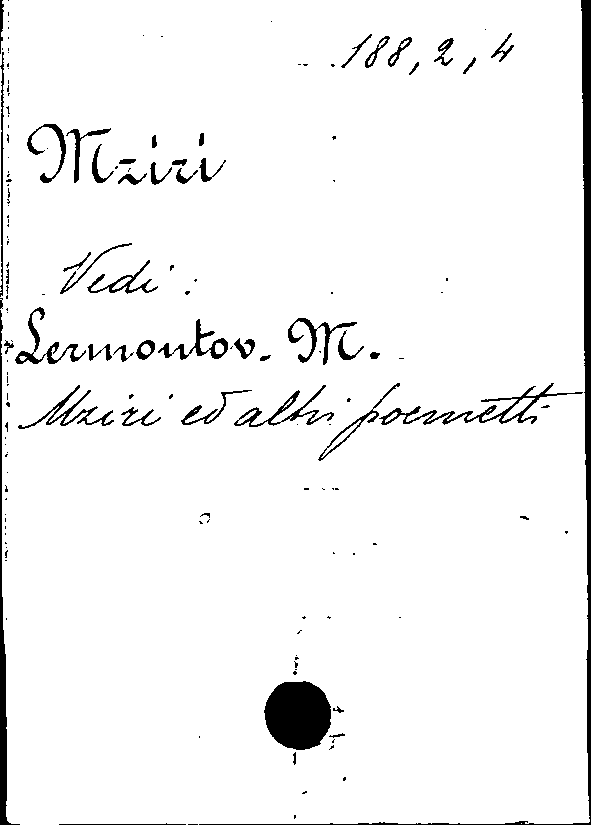 188, 2, 4
Mziri
Vedi:
Lermontov. M.
Mziri ed altri poemetti